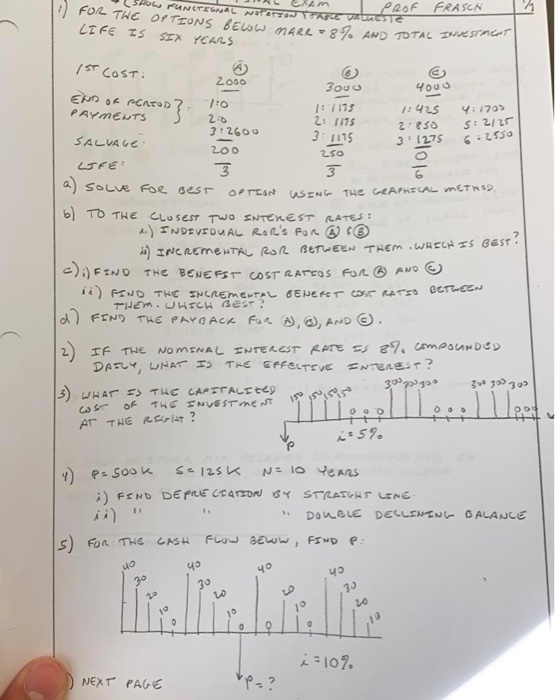 EXAM PROF FRASCH
(SHOW FUNCTIONAL NOTATION, TABLE VALUES)
1) FOR THE OPTIONS BELOW MARR = 8% AND TOTAL INVESTMENT
LIFE IS SIX YEARS
1ST COST: Ⓐ 2000 Ⓑ 3000 Ⓒ 4000
END OF PERIOD } 1:0 1: 1175 1: 425 4: 1700
PAYMENTS 2:0 2: 1175 2: 850 5: 2125
3: 2600 3: 1175 3: 1275 6: 2550
SALVAGE: 200 250 0
LIFE: 3 3 6
a) SOLVE FOR BEST OPTION USING THE GRAPHICAL METHOD
b) TO THE CLOSEST TWO INTEREST RATES:
i.) INDIVIDUAL ROR'S FOR Ⓐ & Ⓑ
ii) INCREMENTAL ROR BETWEEN THEM. WHICH IS BEST?
c) i) FIND THE BENEFIT COST RATIOS FOR Ⓐ AND Ⓒ
ii) FIND THE INCREMENTAL BENEFIT COST RATIO BETWEEN
THEM. WHICH BEST?
d) FIND THE PAYBACK FOR Ⓐ, Ⓑ, AND Ⓒ.
2) IF THE NOMINAL INTEREST RATE IS 8% COMPOUNDED
DAILY, WHAT IS THE EFFECTIVE INTEREST?
3) WHAT IS THE CAPITALIZED
COST OF THE INVESTMENT
AT THE RIGHT?
150 150 150 150 0 0 0 300 300 300 0 0 0 300 300 300 0 0 0
P i = 5%
4) P = 500K S = 125K N = 10 YEARS
i) FIND DEPRECIATION BY STRAIGHT LINE.
ii) " " " DOUBLE DECLINING BALANCE
5) FOR THE CASH FLOW BELOW, FIND P:
40 30 20 10 0 40 30 20 10 0 40 0 20 10 0 40 30 20 10
P = ? i = 10%
) NEXT PAGE